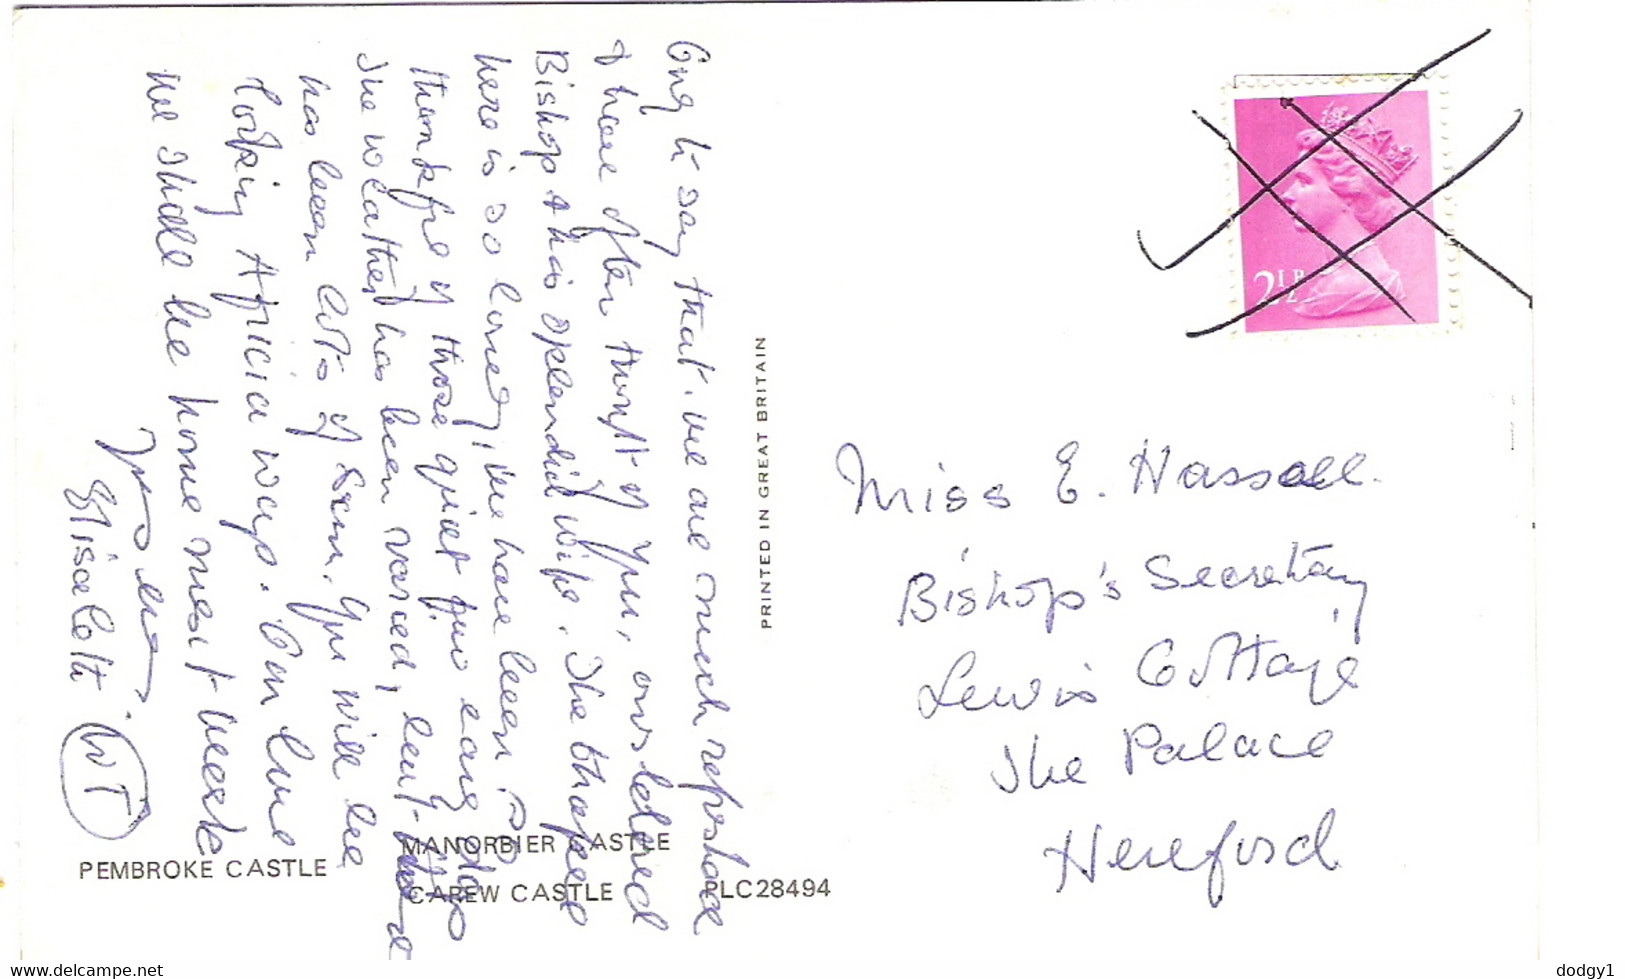 Only to say that we are much refreshed
& have often thought of you, our beloved
Bishop & his splendid wife. The
here is so lovely, we have been so
thankful of those quiet few early days
The weather has been varied, but there
has been lots of sun. You will be
looking Africa ways. Our love
We shall be home next week
Yours ever
Elisabeth WT
PRINTED IN GREAT BRITAIN
2½P
Miss E. Hassall.
Bishop's Secretary
Lewis Cottage
The Palace
Hereford
MANORBIER CASTLE
PEMBROKE CASTLE
CAREW CASTLE PLC28494
Delcampe.net
dodgy1